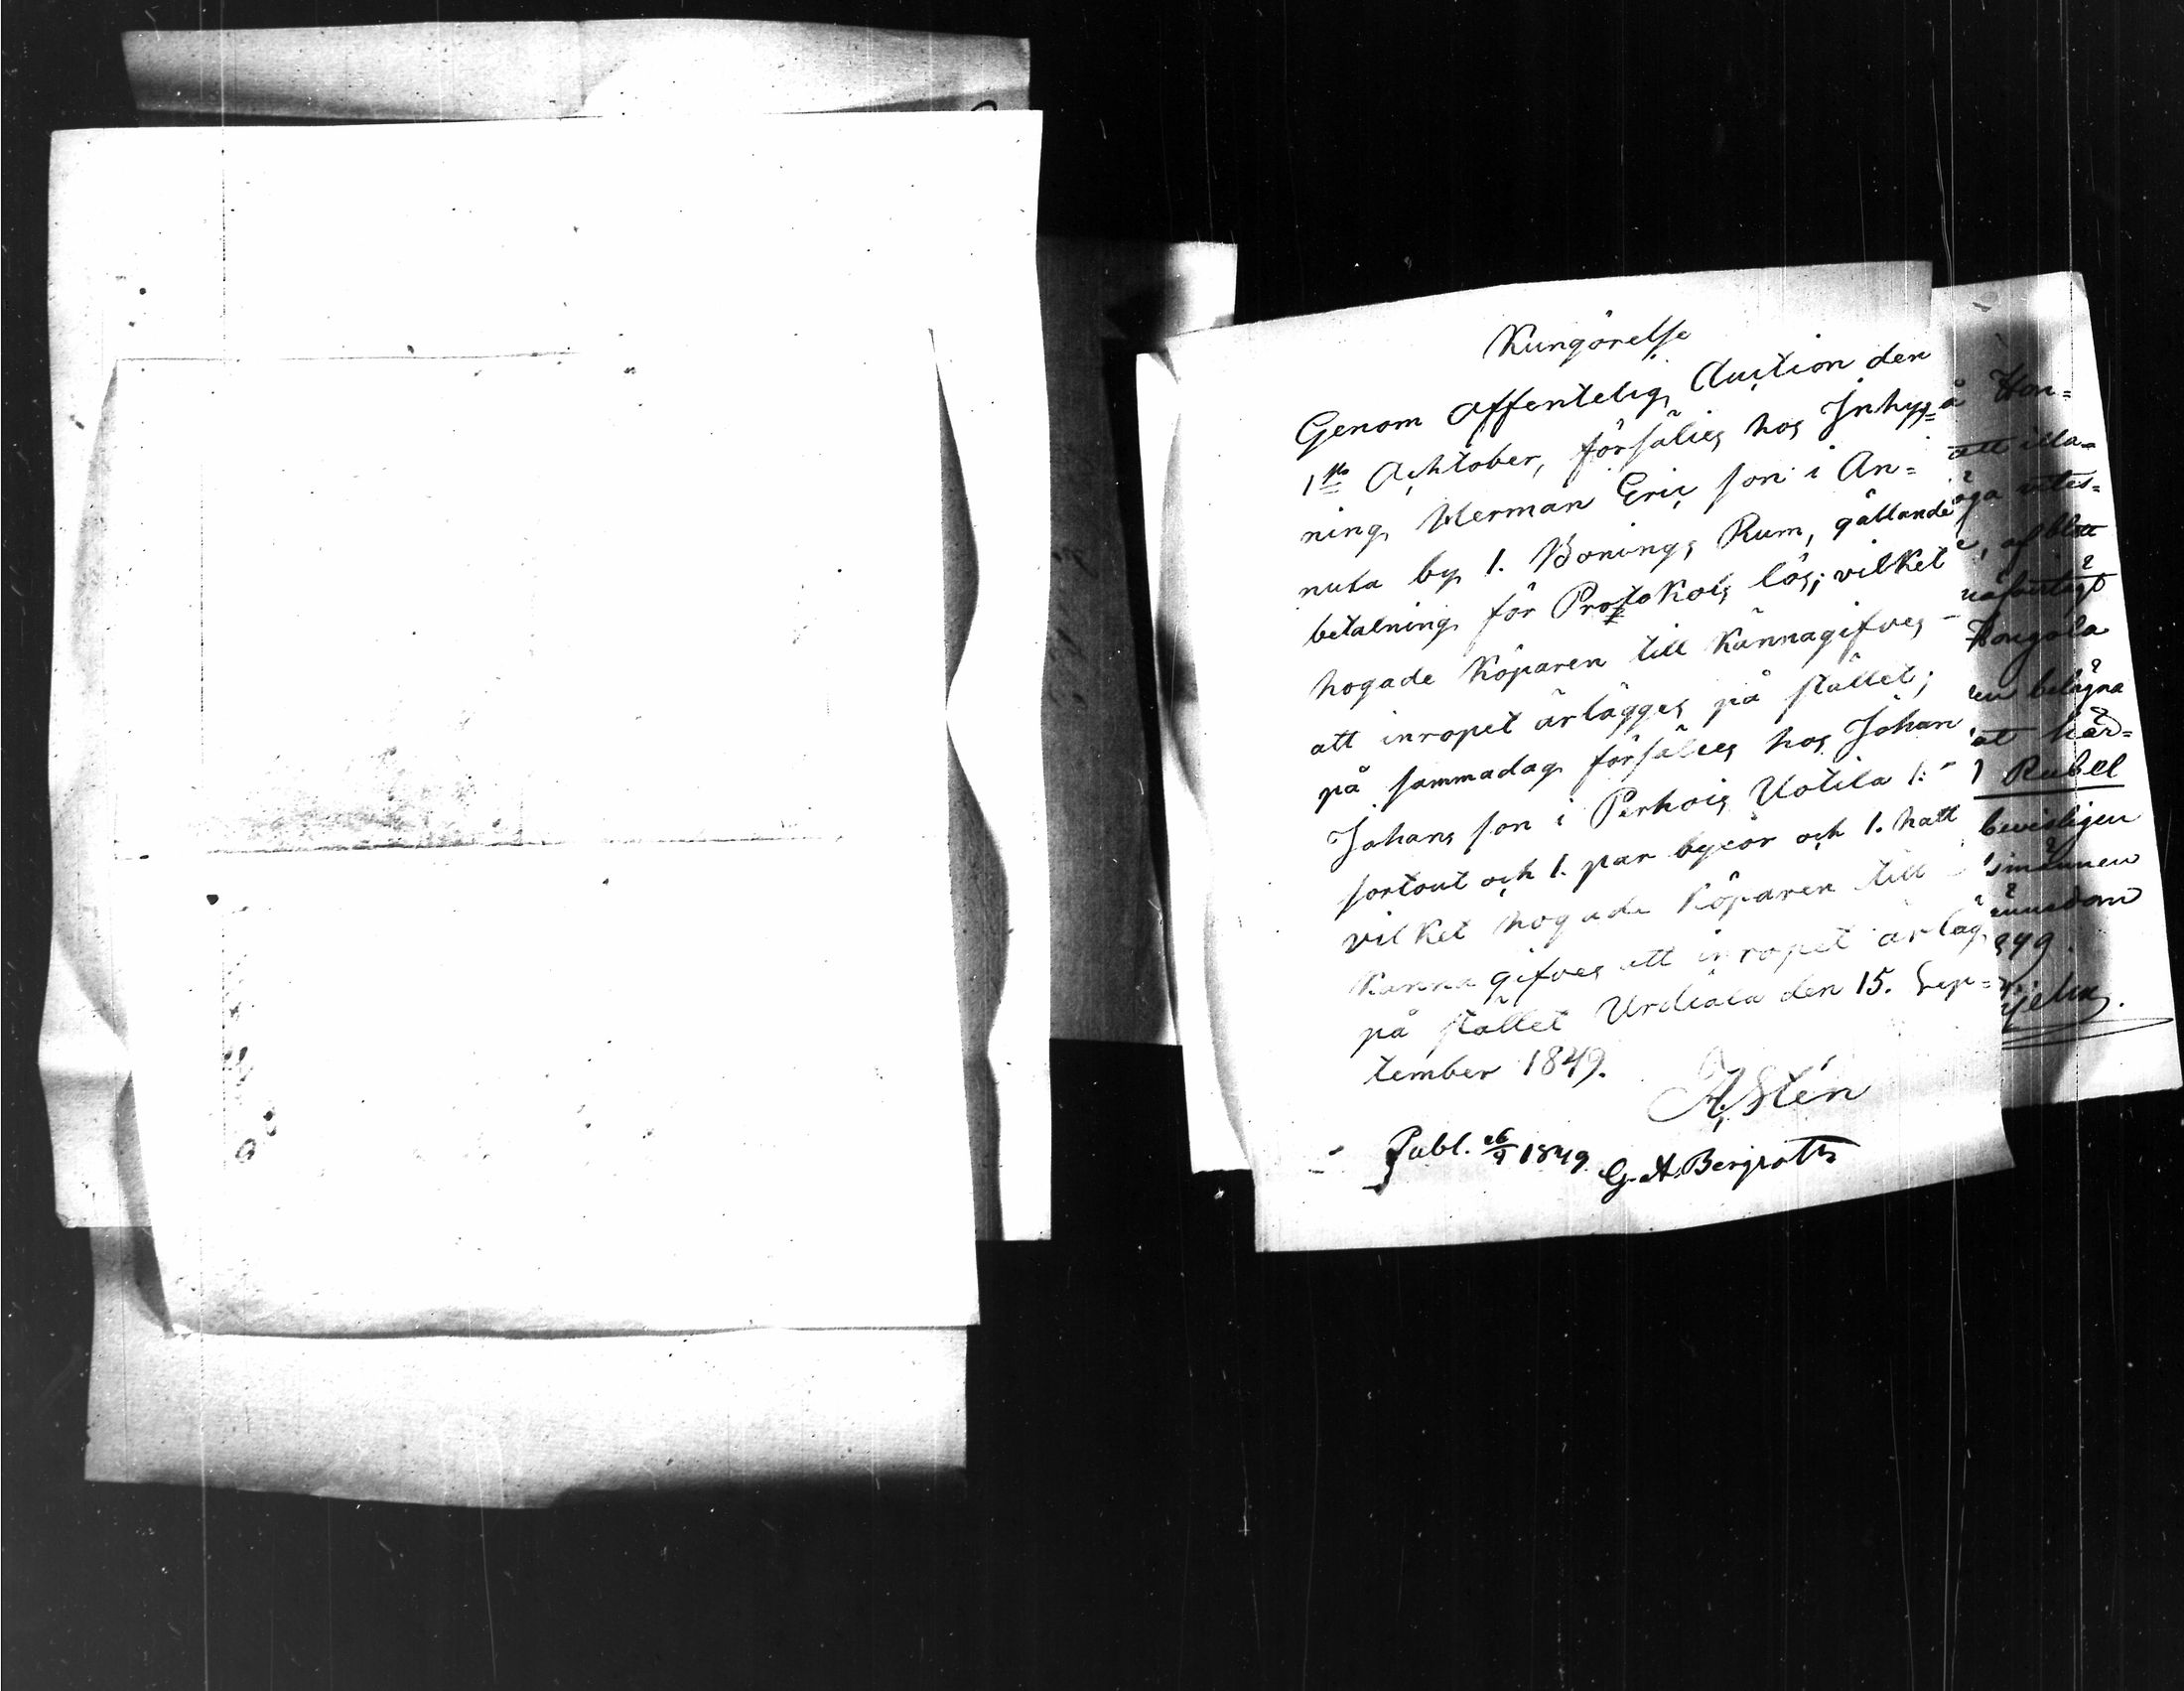 Kungörelse
Genom offentelig Auction den
1sta Ochtober, försälies hos Inhys=
ning Herman Eric son i An=
nula by 1. Bonings Rum, gällande
betalning för Protokols lös; vilket
hogade Köparen till Kännagifves
att inropet ärlägges på stället;
på sammadag försälies hos Johan
Johans son i Perhois Uotila 1.
sortout och 1. par bycsor och 1. hatt
vilket hogade Köparen till
Kännagifves att inropet ärläg
på stället Urdiala den 15. Sep=
tember 1849.
A. Stén
Publ. 26/9 1849 G. A. Bergroth
å Hon=
att illa=
äga
af blott
Hongola
belägna
at här=
1 Rubel
bevisligen
849.